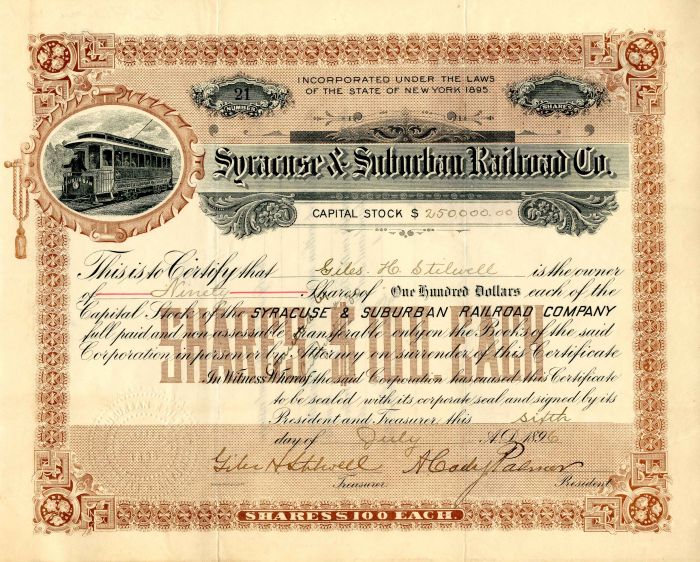 INCORPORATED UNDER THE LAWS
OF THE STATE OF NEW YORK 1895.
21
NUMBER
SHARES
Syracuse & Suburban Railroad Co.
CAPITAL STOCK $ 250000.00
This is to Certify that Giles H. Stilwell is the owner
of Ninety Shares of One Hundred Dollars each of the
Capital Stock of the SYRACUSE & SUBURBAN RAILROAD COMPANY
full paid and non assessable transferable only on the Books of the said
Corporation in person or by Attorney on surrender of this Certificate
In Witness Whereof, the said Corporation has caused this Certificate
to be sealed with its corporate seal and signed by its
President and Treasurer, this sixth
day of July A.D. 1896
Giles H Stilwell A Cady Palmer
Treasurer. President.
SHARES $100 EACH
SHARES $100 EACH.